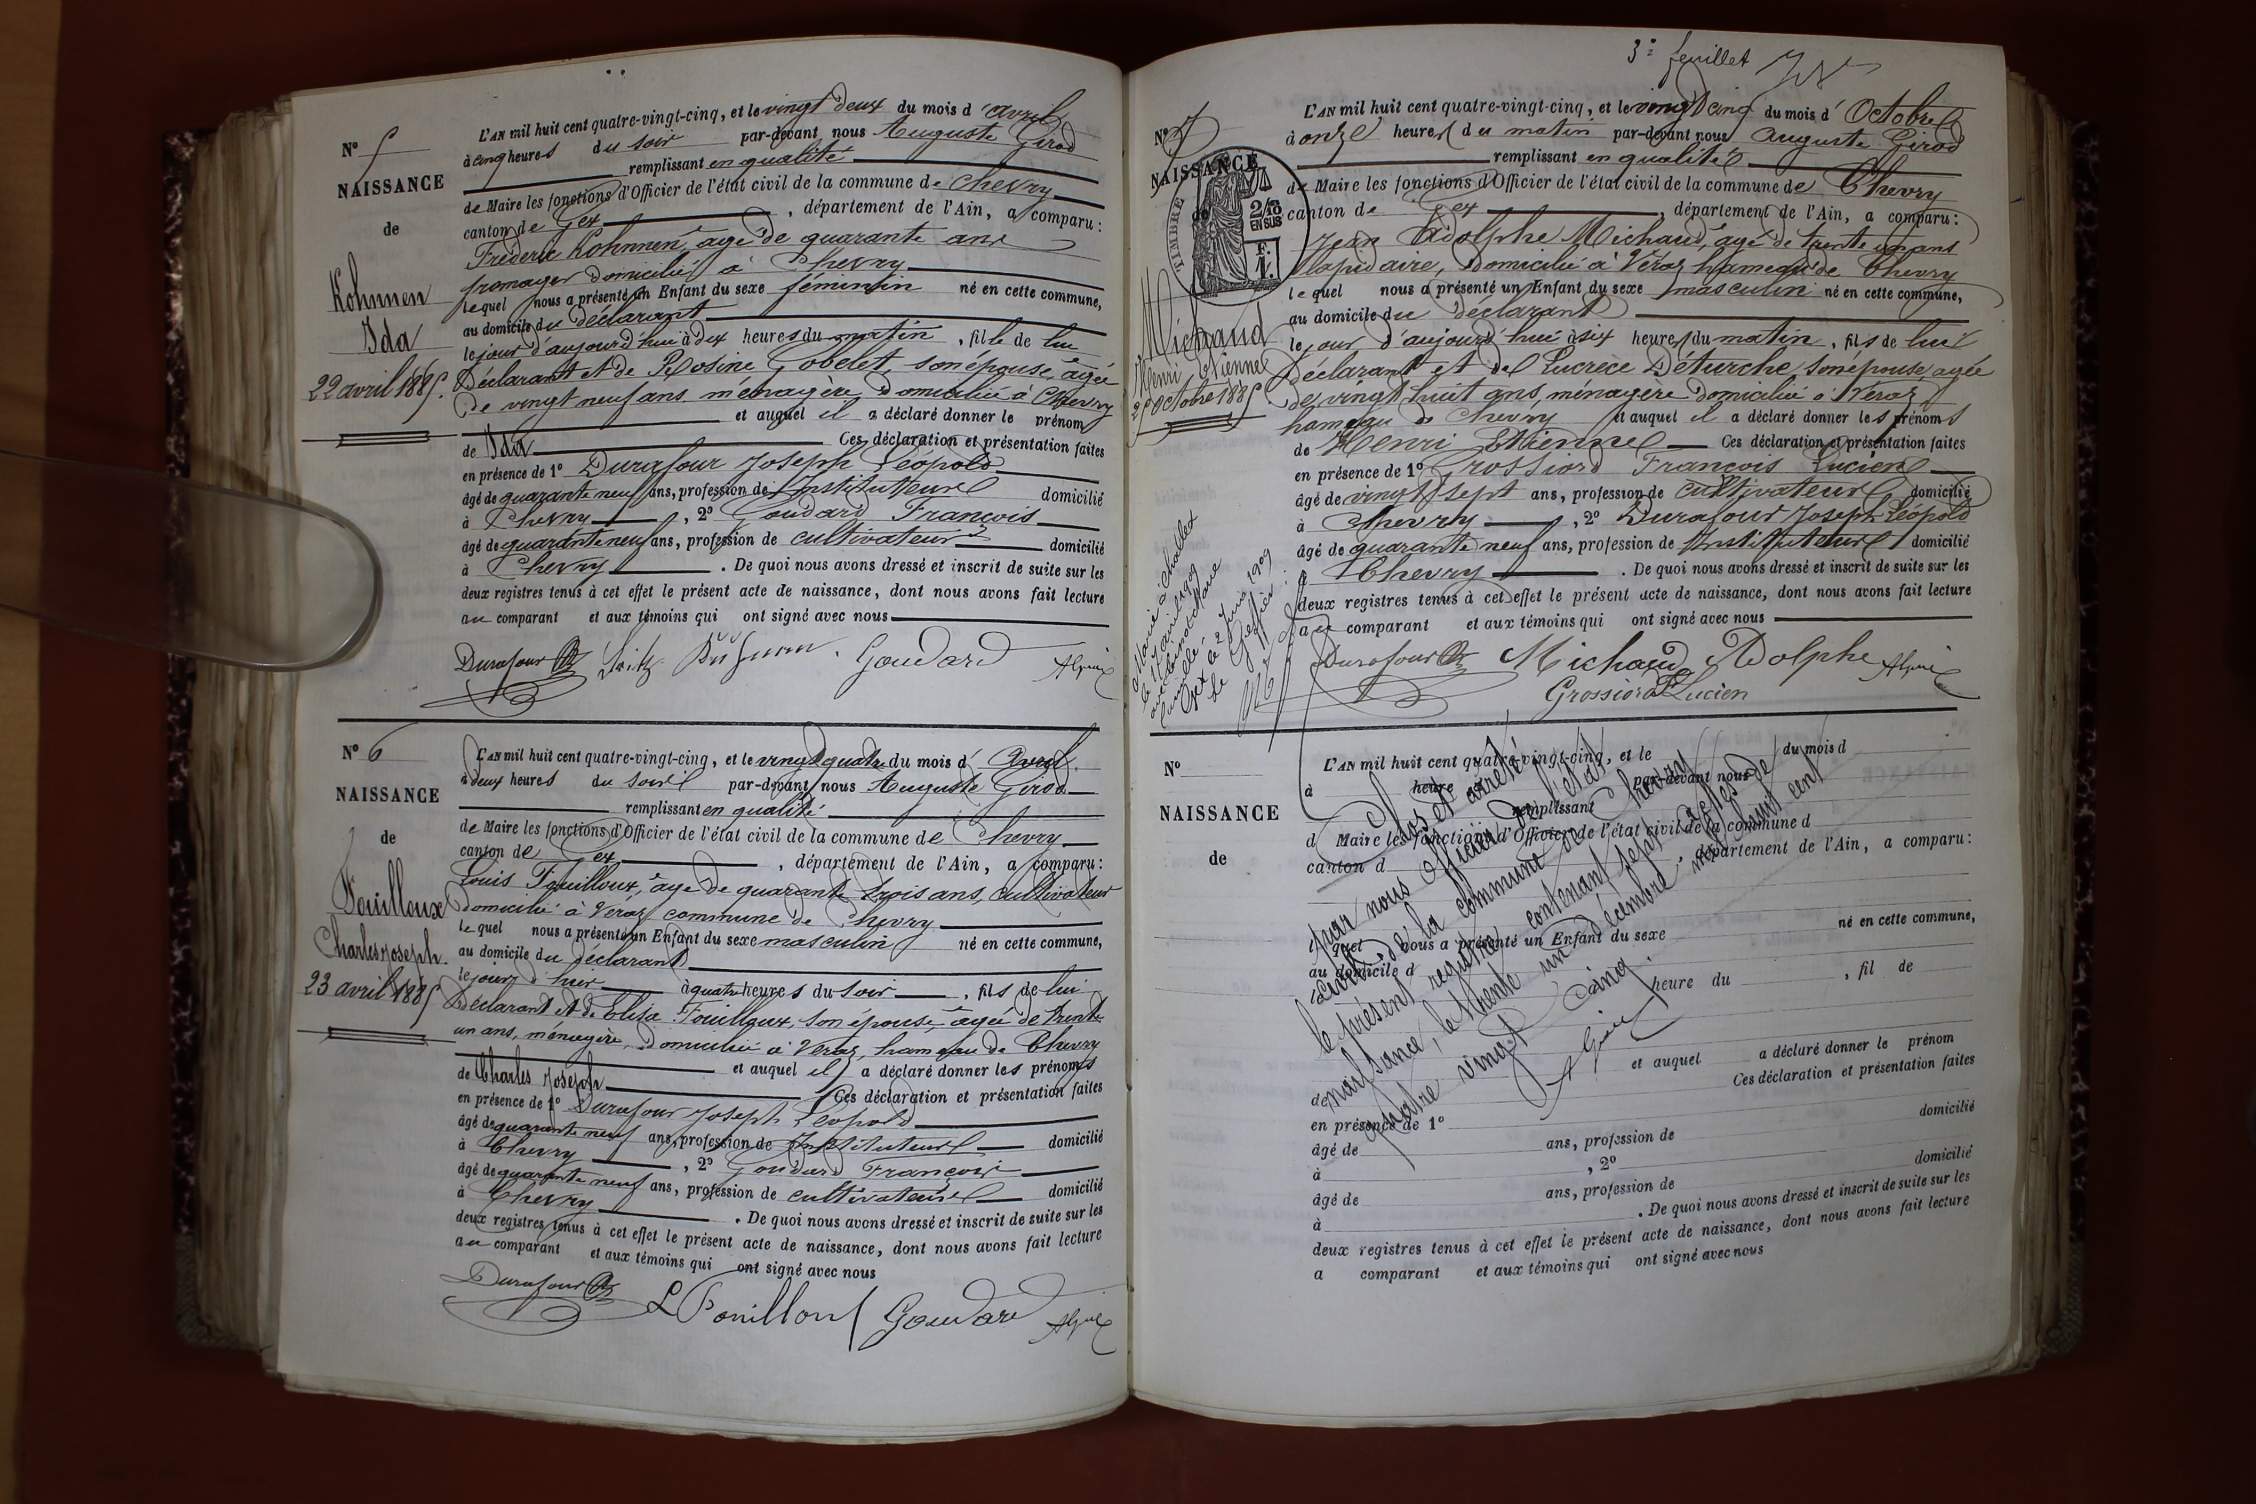 N° 5
NAISSANCE
de
Kohnnen
Ida
22 avril 1885.
L'AN mil huit cent quatre-vingt-cinq, et le vingt deux du mois d'avril
à cinq heures du soir par-devant nous Auguste Girod
remplissant en qualité
de Maire les fonctions d'Officier de l'état civil de la commune de Chevry
canton de Gex, département de l'Ain, a comparu :
Fréderic Kohnnen, âgé de quarante ans
fromager domicilié à Chevry
lequel nous a présenté un Enfant du sexe féminin né en cette commune,
au domicile du déclarant
le jour d'aujourd'hui à deux heures du matin, fille de lui
Déclarant et de Rosine Gobelet, son épouse, âgée
de vingt neuf ans ménagère domiciliée à Chevry
et auquel il a déclaré donner le prénom
de Ida Ces déclaration et présentation faites
en présence de 1° Durafour Joseph Léopold
âgé de quarante neuf ans, profession de Instituteur domicilié
à Chevry, 2° Goudard François
âgé de quarante neuf ans, profession de cultivateur domicilié
à Chevry. De quoi nous avons dressé et inscrit de suite sur les
deux registres tenus à cet effet le présent acte de naissance, dont nous avons fait lecture
au comparant et aux témoins qui ont signé avec nous
Durafour Goudard
N° 6
NAISSANCE
de
Fouilloux
Charles Joseph.
23 avril 1885
L'AN mil huit cent quatre-vingt-cinq, et le vingt quatre du mois d'Avril
à deux heures du soir par-devant nous Auguste Girod
remplissant en qualité
de Maire les fonctions d'Officier de l'état civil de la commune de Chevry
canton de Gex, département de l'Ain, a comparu :
Louis Fouilloux, âgé de quarante trois ans, cultivateur
domicilié à Véraz commune de Chevry
lequel nous a présenté un Enfant du sexe masculin né en cette commune,
au domicile du déclarant
le jour d'hier à quatre heures du soir, fils de lui
Déclarant et de Elisa Fouilloux, son épouse, âgée de trente
un ans, ménagère, domiciliée à Véraz, hameau de Chevry
et auquel il a déclaré donner les prénoms
de Charles Joseph Ces déclaration et présentation faites
en présence de 1° Durafour Joseph Léopold
âgé de quarante neuf ans, profession de Instituteur domicilié
à Chevry, 2° Goudard François
âgé de quarante neuf ans, profession de cultivateur domicilié
à Chevry. De quoi nous avons dressé et inscrit de suite sur les
deux registres tenus à cet effet le présent acte de naissance, dont nous avons fait lecture
au comparant et aux témoins qui ont signé avec nous
Durafour L Fouilloux Goudard
3e feuillet
N° 7
NAISSANCE
de
TIMBRE
2/10
EN SUS
F.
1.
Michaud
Henri Etienne
25 Octobre 1885
L'AN mil huit cent quatre-vingt-cinq, et le vingt cinq du mois d'Octobre
à onze heures du matin par-devant nous Auguste Girod
remplissant en qualité
de Maire les fonctions d'Officier de l'état civil de la commune de Chevry
canton de Gex, département de l'Ain, a comparu :
Jean Adolphe Michaud, âgé de trente un ans
lapidaire, domicilié à Véraz hameau de Chevry
lequel nous a présenté un Enfant du sexe masculin né en cette commune,
au domicile du déclarant
le jour d'aujourd'hui à six heures du matin, fils de lui
Déclarant et de Lucrèce Déturche, son épouse, agée
de vingt huit ans, ménagère domiciliée à Véraz
hameau de Chevry et auquel il a déclaré donner les prénoms
de Henri Etienne Ces déclaration et présentation faites
en présence de 1° Grossiord François Lucien
âgé de vingt sept ans, profession de cultivateur domicilié
à Chevry, 2° Durafour Joseph Léopold
âgé de quarante neuf ans, profession de Instituteur domicilié
à Chevry. De quoi nous avons dressé et inscrit de suite sur les
deux registres tenus à cet effet le présent acte de naissance, dont nous avons fait lecture
au comparant et aux témoins qui ont signé avec nous
Durafour Michaud Adolphe
Grossiord Lucien
Marié à Challex
le 17 avril 1909
Gex le 2 Juin 1909
Le Greffier
N°
NAISSANCE
de
L'AN mil huit cent quatre-vingt-cinq, et le du mois d
à heure par-devant nous
remplissant
d Maire les fonctions d'Officier de l'état civil de la commune d
canton d , département de l'Ain, a comparu :
quel nous a présenté un Enfant du sexe né en cette commune,
au domicile d
heure du , fil de
et auquel a déclaré donner le prénom
de Ces déclaration et présentation faites
en présence de 1°
âgé de ans, profession de domicilié
à , 2°
âgé de ans, profession de domicilié
à . De quoi nous avons dressé et inscrit de suite sur les
deux registres tenus à cet effet le présent acte de naissance, dont nous avons fait lecture
a comparant et aux témoins qui ont signé avec nous
Clos et arrêté
par nous officier de l'état
civil de la commune de Chevry
le présent registre contenant sept actes de
naissance, le trente un décembre mil huit cent
quatre vingt cinq.